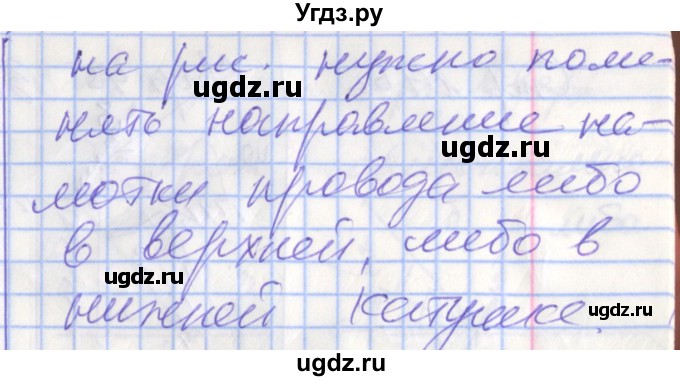 Угдз.ру
на рис. нужно поме-
нять направление на-
мотки провода либо
в верхней, либо в
нижней катушке.
ugdz.ru
ugdz.ru
ugdz.ru
ugdz.ru
ugdz.ru
ugdz.ru
ugdz.ru